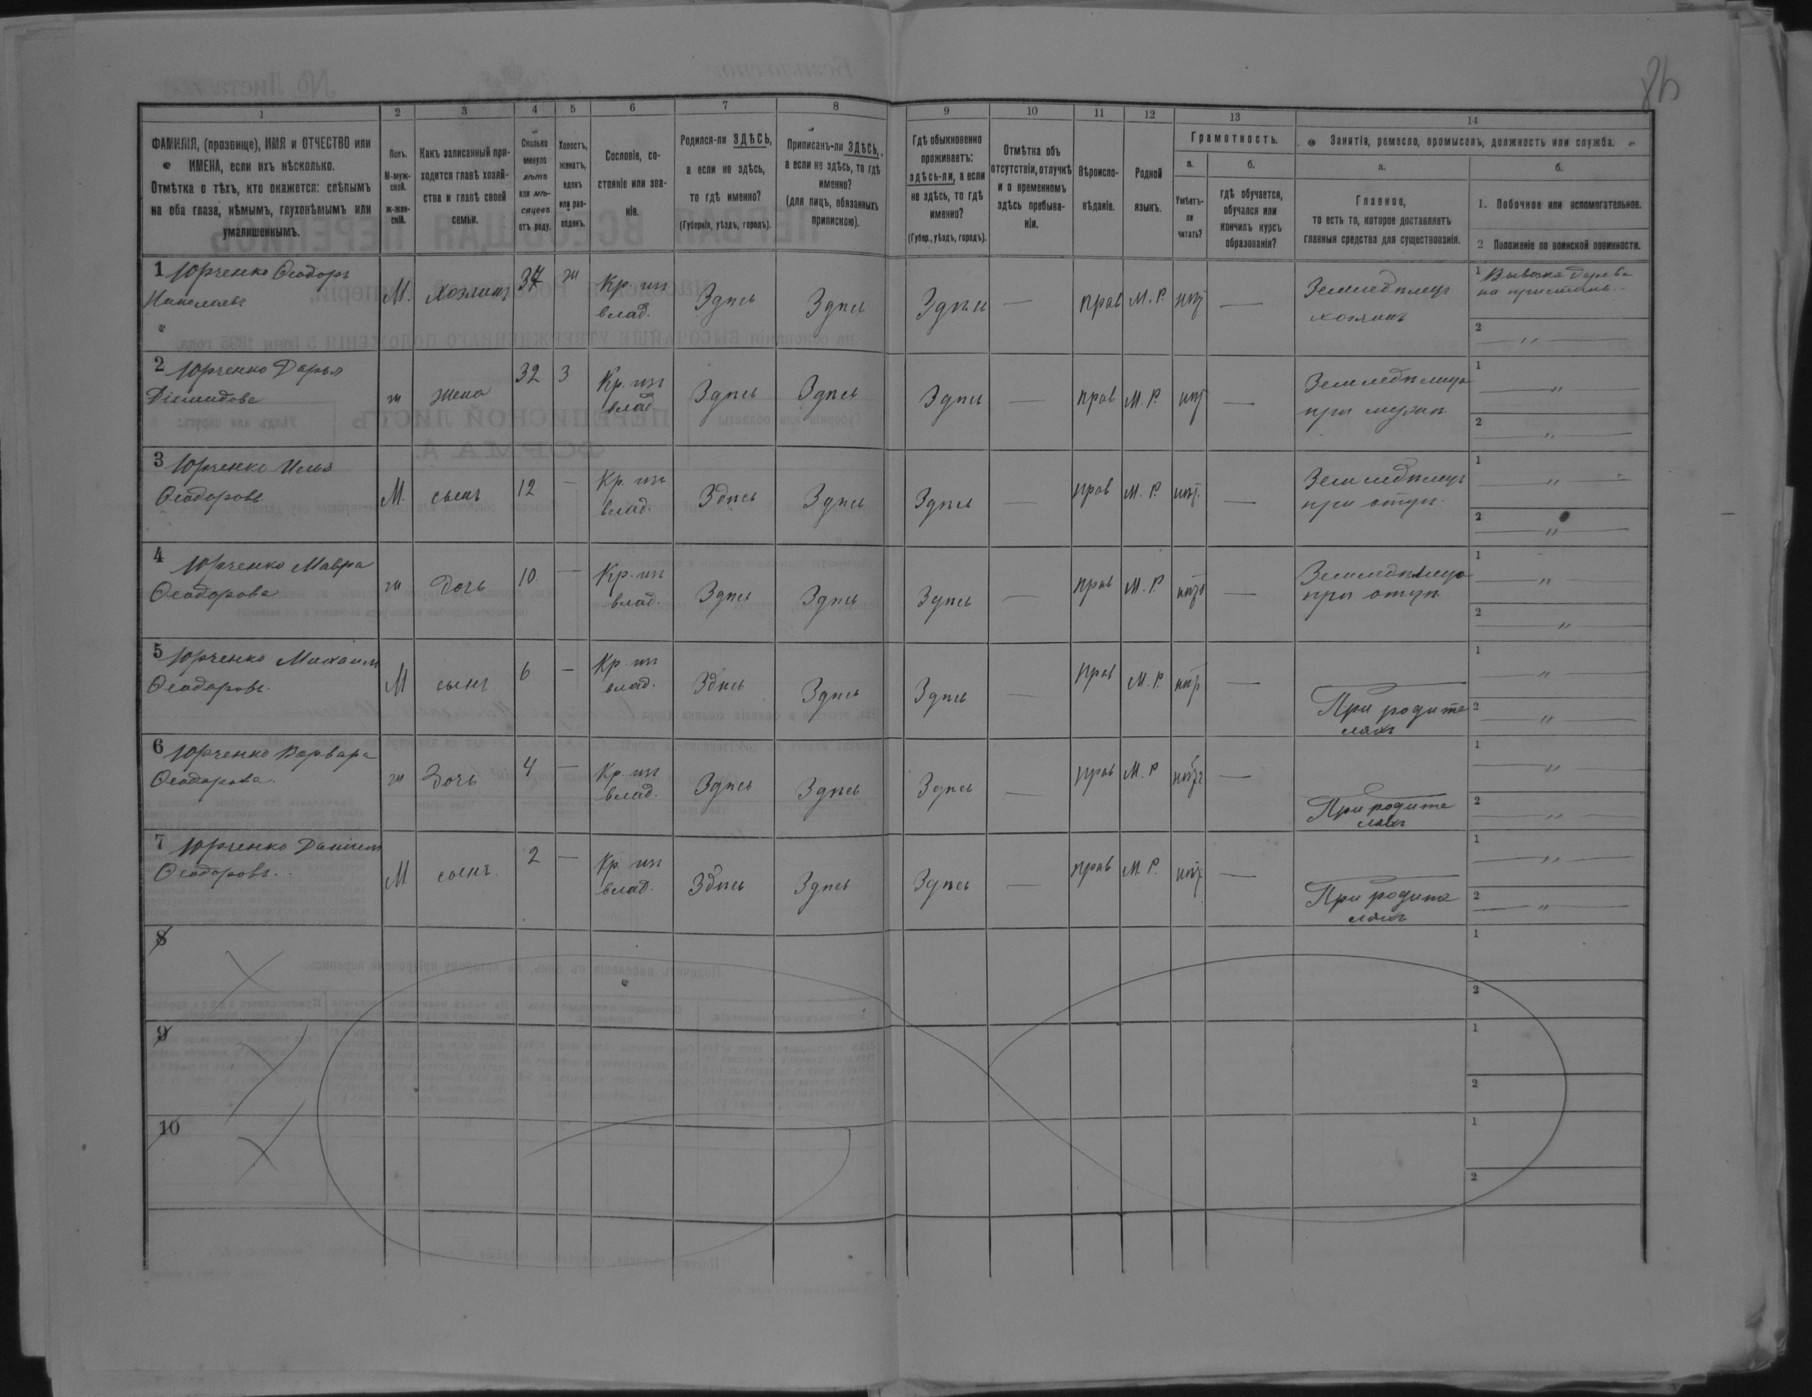 1 2 3 4 5 6 7 8 9 10 11 12 13 14
ФАМИЛІЯ, (прозвище), ИМЯ и ОТЧЕСТВО или
ИМЕНА, если ихъ нѣсколько.
Отмѣтка о тѣхъ, кто окажется: слѣпымъ
на оба глаза, нѣмымъ, глухонѣмымъ или
умалишеннымъ.
Полъ.
М-муж-
ской.
ж-жен-
скій.
Какъ записанный при-
ходится главѣ хозяй-
ства и главѣ своей
семьи.
Сколько
минуло
лѣтъ
или мѣ-
сяцевъ
отъ роду.
Холостъ,
женатъ,
вдовъ
или раз-
веденъ.
Сословіе, со-
стояніе или зва-
ніе.
Родился-ли ЗДѢСЬ,
а если не здѣсь,
то гдѣ именно?
(Губернія, уѣздъ, городъ).
Приписанъ-ли ЗДѢСЬ,
а если не здѣсь, то гдѣ
именно?
(для лицъ, обязанныхъ
припискою).
Гдѣ обыкновенно
проживаетъ:
здѣсь-ли, а если
не здѣсь, то гдѣ
именно?
(Губер., уѣздъ, городъ).
Отмѣтка объ
отсутствіи, отлучкѣ
и о временномъ
здѣсь пребыва-
ніи.
Вѣроиспо-
вѣданіе.
Родной
языкъ.
Грамотность.
а.
Умѣетъ-
ли
читать?
б.
гдѣ обучается,
обучался или
кончилъ курсъ
образованія?
Занятія, ремесло, промыселъ, должность или служба.
а.
Главное,
то есть то, которое доставляетъ
главныя средства для существованія.
б.
1. Побочное или вспомогательное.
2 Положеніе по воинской повинности.
1 Юрченко Ѳеодоръ
Николаевъ
М. хозяинъ 37 ж Кр. изъ
влад. Здѣсь Здѣсь Здѣсь — прав М. Р. нѣтъ — Земледѣлецъ
хозяинъ
1 Вывозка дерева
на пристань
2 — " —
2 Юрченко Дарья
Діомидова
ж жена 32 З Кр. изъ
влад. Здѣсь Здѣсь Здѣсь — прав М. Р. нѣтъ — Земледѣлица
при мужѣ
1 — " —
2 — " —
3 Юрченко Илья
Ѳеодоровъ
М. сынъ 12 — Кр. изъ
влад. Здѣсь Здѣсь Здѣсь — прав М. Р. нѣтъ. — Земледѣлецъ
при отцѣ.
1 — " —
2 — " —
4 Юрченко Мавра
Ѳеодорова
ж дочь 10. — Кр. изъ
влад. Здѣсь Здѣсь Здѣсь — прав М. Р. нѣтъ — Земледѣлица
при отцѣ
1 — " —
2 — " —
5 Юрченко Михаилъ
Ѳеодоровъ.
М сынъ 6 — Кр. изъ
влад. Здѣсь Здѣсь Здѣсь — прав М. Р. нѣтъ — При родите
ляхъ
1 — " —
2 — " —
6 Юрченко Варвара
Ѳеодорова.
ж дочь 4 — Кр. изъ
влад. Здѣсь Здѣсь Здѣсь — прав М. Р. нѣтъ — При родите
ляхъ
1 — " —
2 — " —
7 Юрченко Даніилъ
Ѳеодоровъ.
М сынъ. 2 — Кр. изъ
влад. Здѣсь Здѣсь Здѣсь — прав М. Р. нѣтъ — При родите
ляхъ
1 — " —
2 — " —
8
1
2
9
1
2
10
1
2